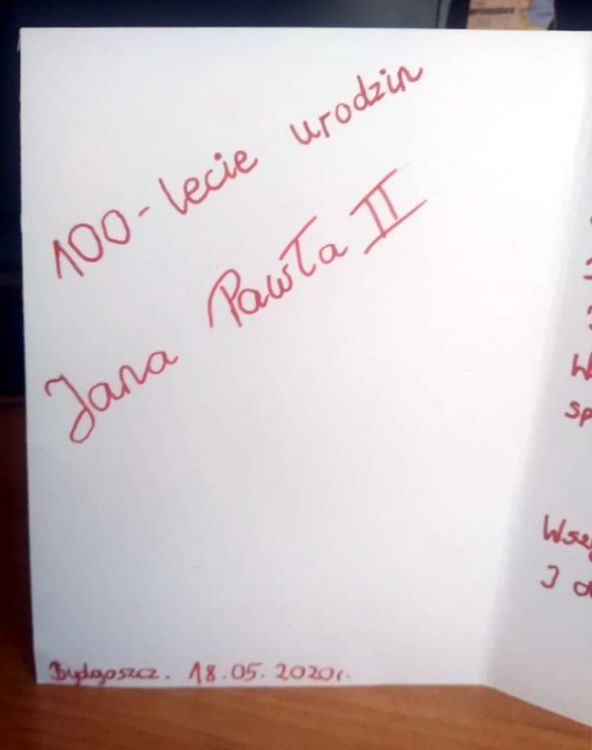 100-lecie urodzin
Jana Pawła II
Bydgoszcz. 18.05.2020r.